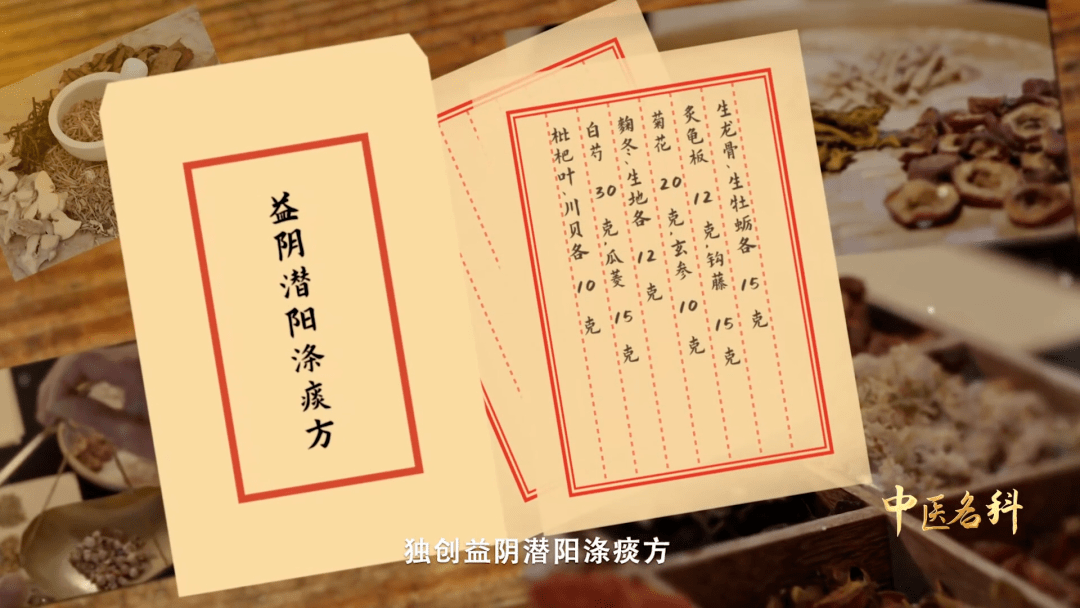 益阴潜阳涤痰方
生龙骨、生牡蛎各15克
炙龟板12克、钩藤15克
菊花20克玄参10克
麴冬、生地各12克
白芍30克、瓜蒌15克
枇杷叶、川贝各10克
中医名科
独创益阴潜阳涤痰方